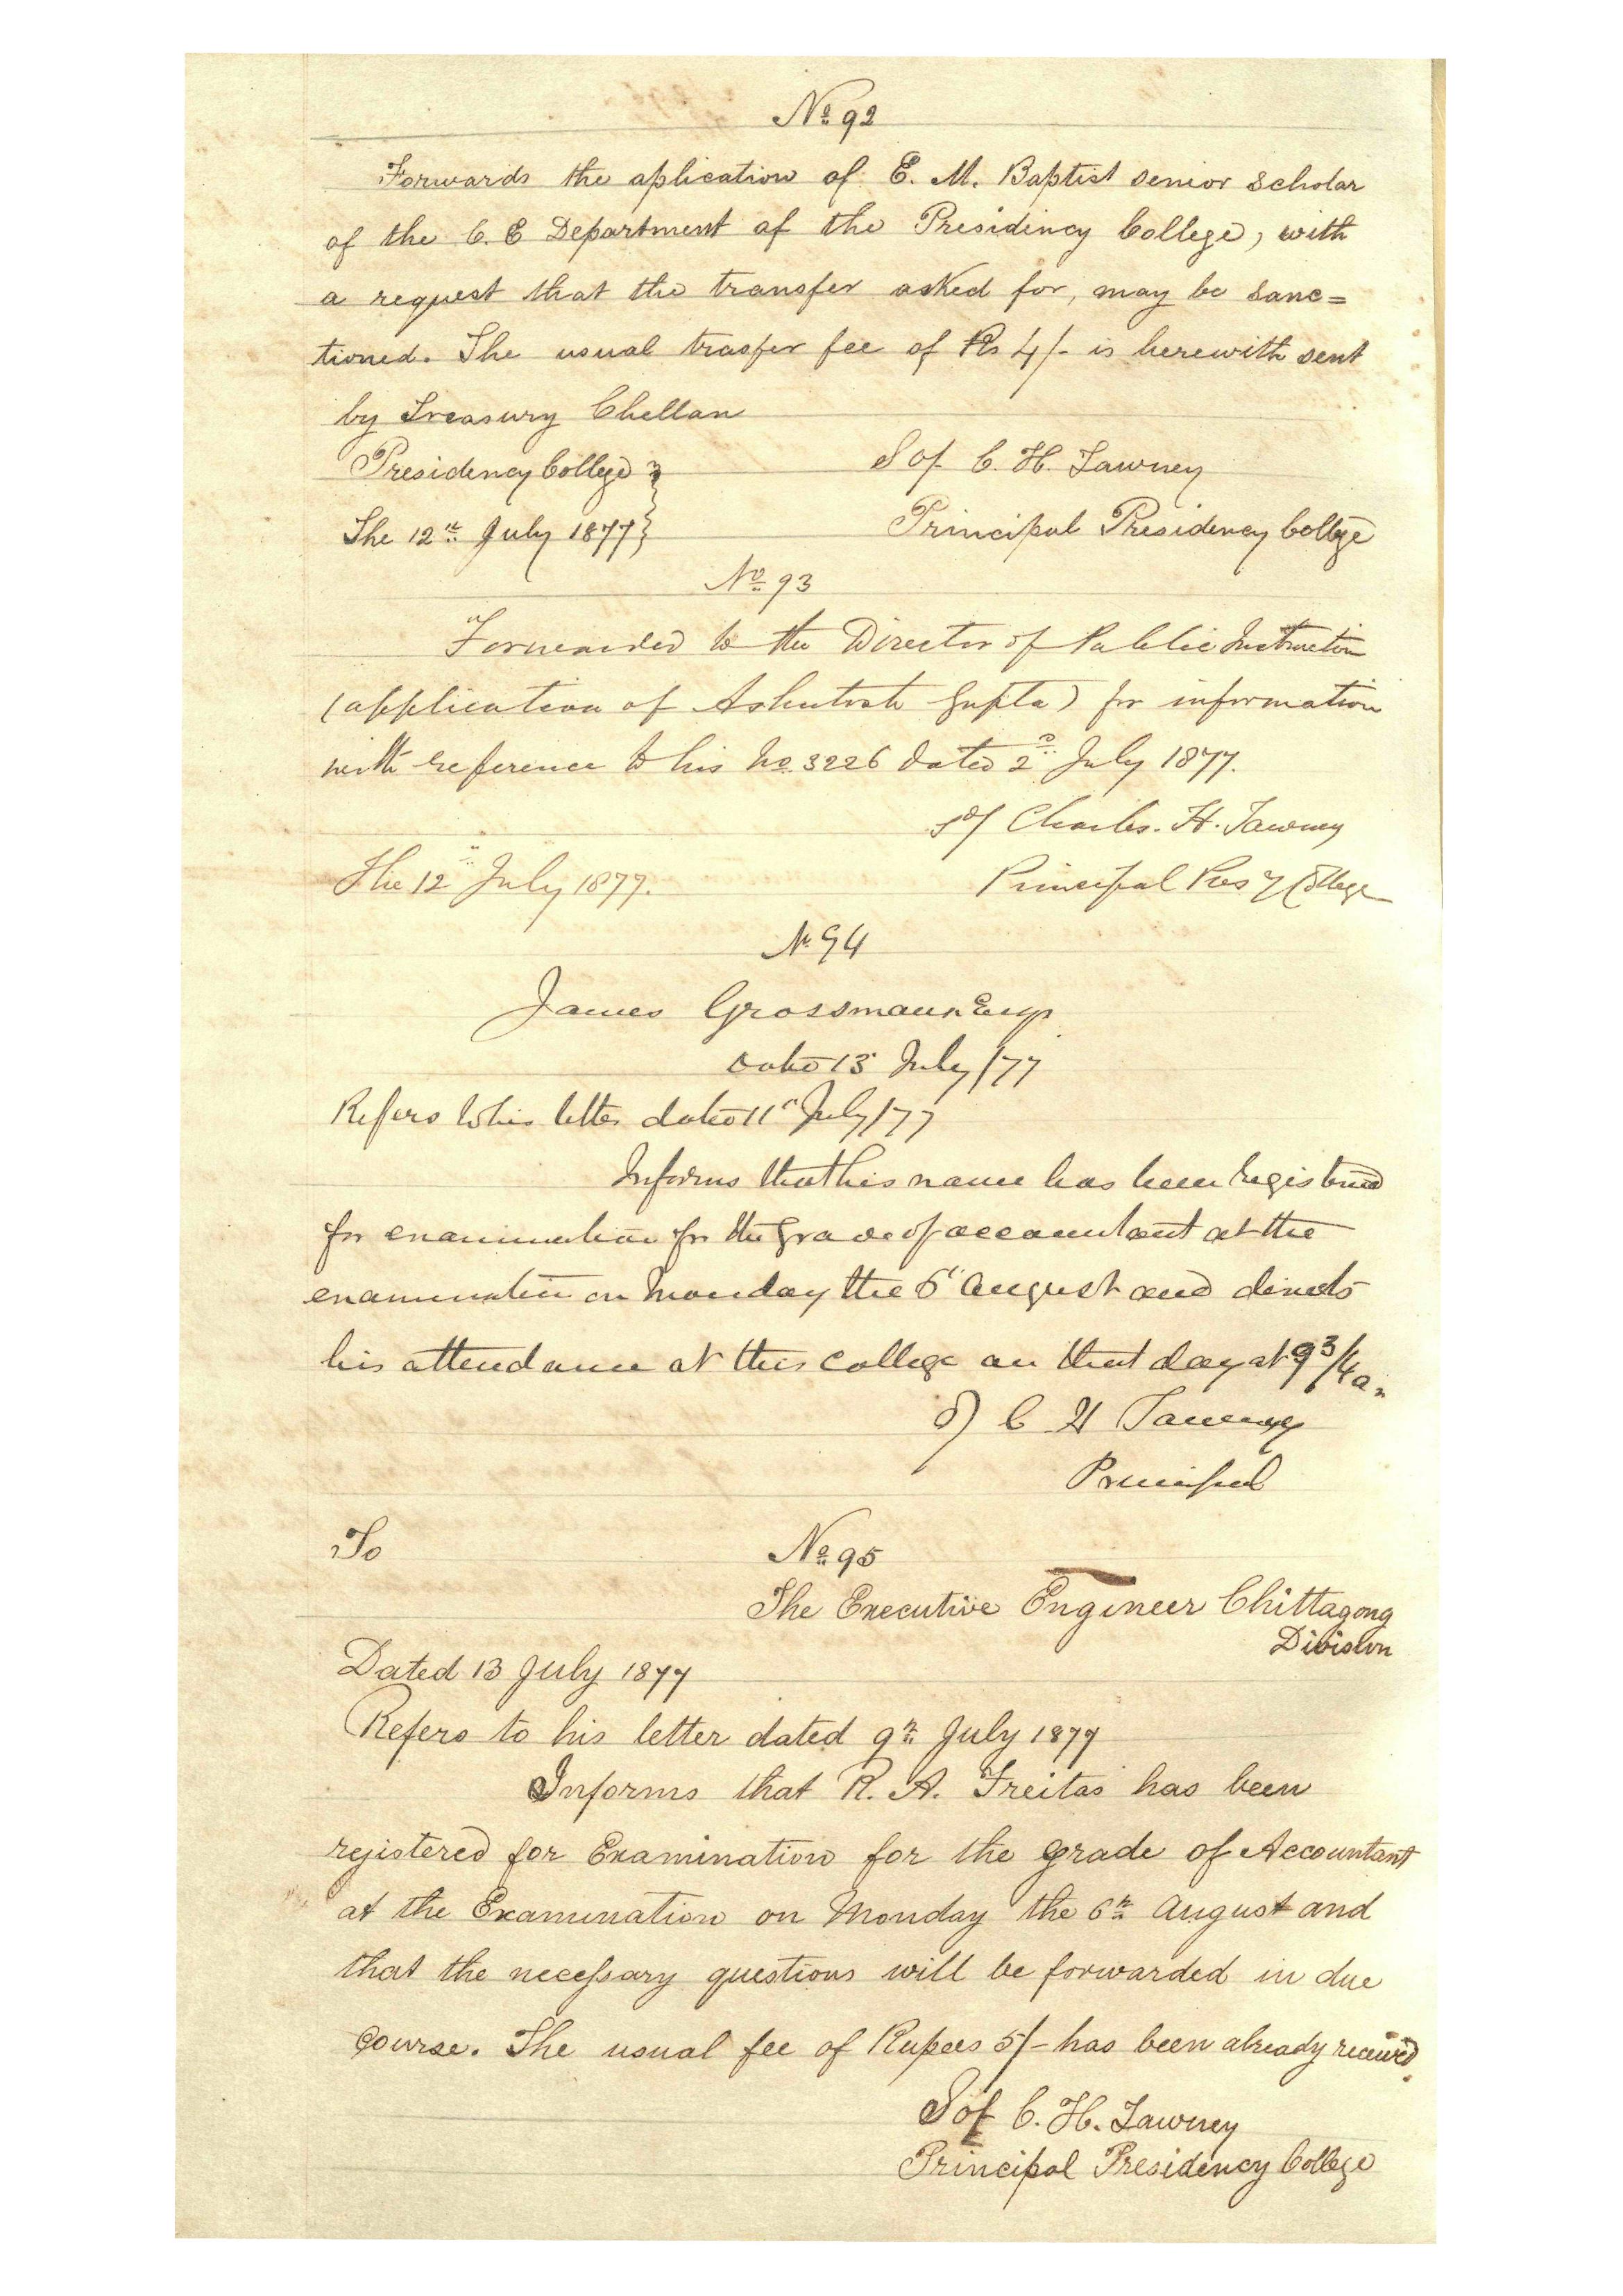 No. 92
Forwards the aplication of E. M. Baptist senior scholar
of the C. E Department of the Presidincy College, with
a request that the transfer asked for, may be sanc=
tioned. The usual trasfer fee of Rs 4/- is herewith sent
by Treasury Chellan
Presidency College
Sd/ C. H. Tawney
The 12th July 1877
Principal Presidency College
No. 93
Forwarded to the Director of Public Instruction
(application of Ashutosh Gupta) for information
with reference to his No. 3226 dated 2d July 1877.
Sd/ Charles. H. Tawney
The 12th July 1877.
Principal Presy College
No 94
James Grossmann Esqr
Dated 13 July /77
Refers to his letter dated 11th July /77
Informs that his name has been registered
for examination for the Grade of accountant at the
examination on Monday the 6th August and directs
his attendance at this College on that day at 9 3/4 a.
Sd) C H Tawney
Principal
To
No. 95
The Executive Engineer Chittagong
Division
Dated 13 July 1877
Refers to his letter dated 9th July 1877
Informs that R. A. Freitas has been
registered for Examination for the grade of Accountant
at the Examination on Monday the 6th August and
that the necessary questions will be forwarded in due
Course. The usual fee of Rupees 5/- has been already received.
Sd/ C. H. Tawney
Principal Presidency College